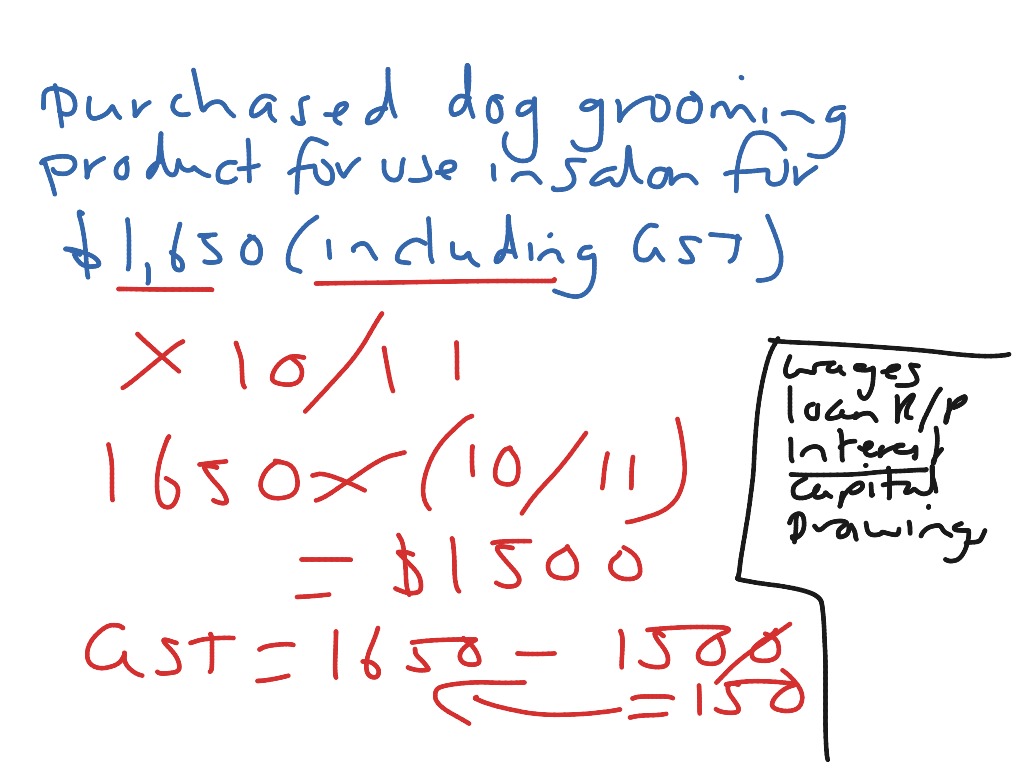 purchased dog grooming
product for use in salon for
$1,650 (including GST)
× 10/11
1650 × (10/11)
= $1500
GST = 1650 - 1500
= 150
wages
loan R/P
interest
capital
Drawings